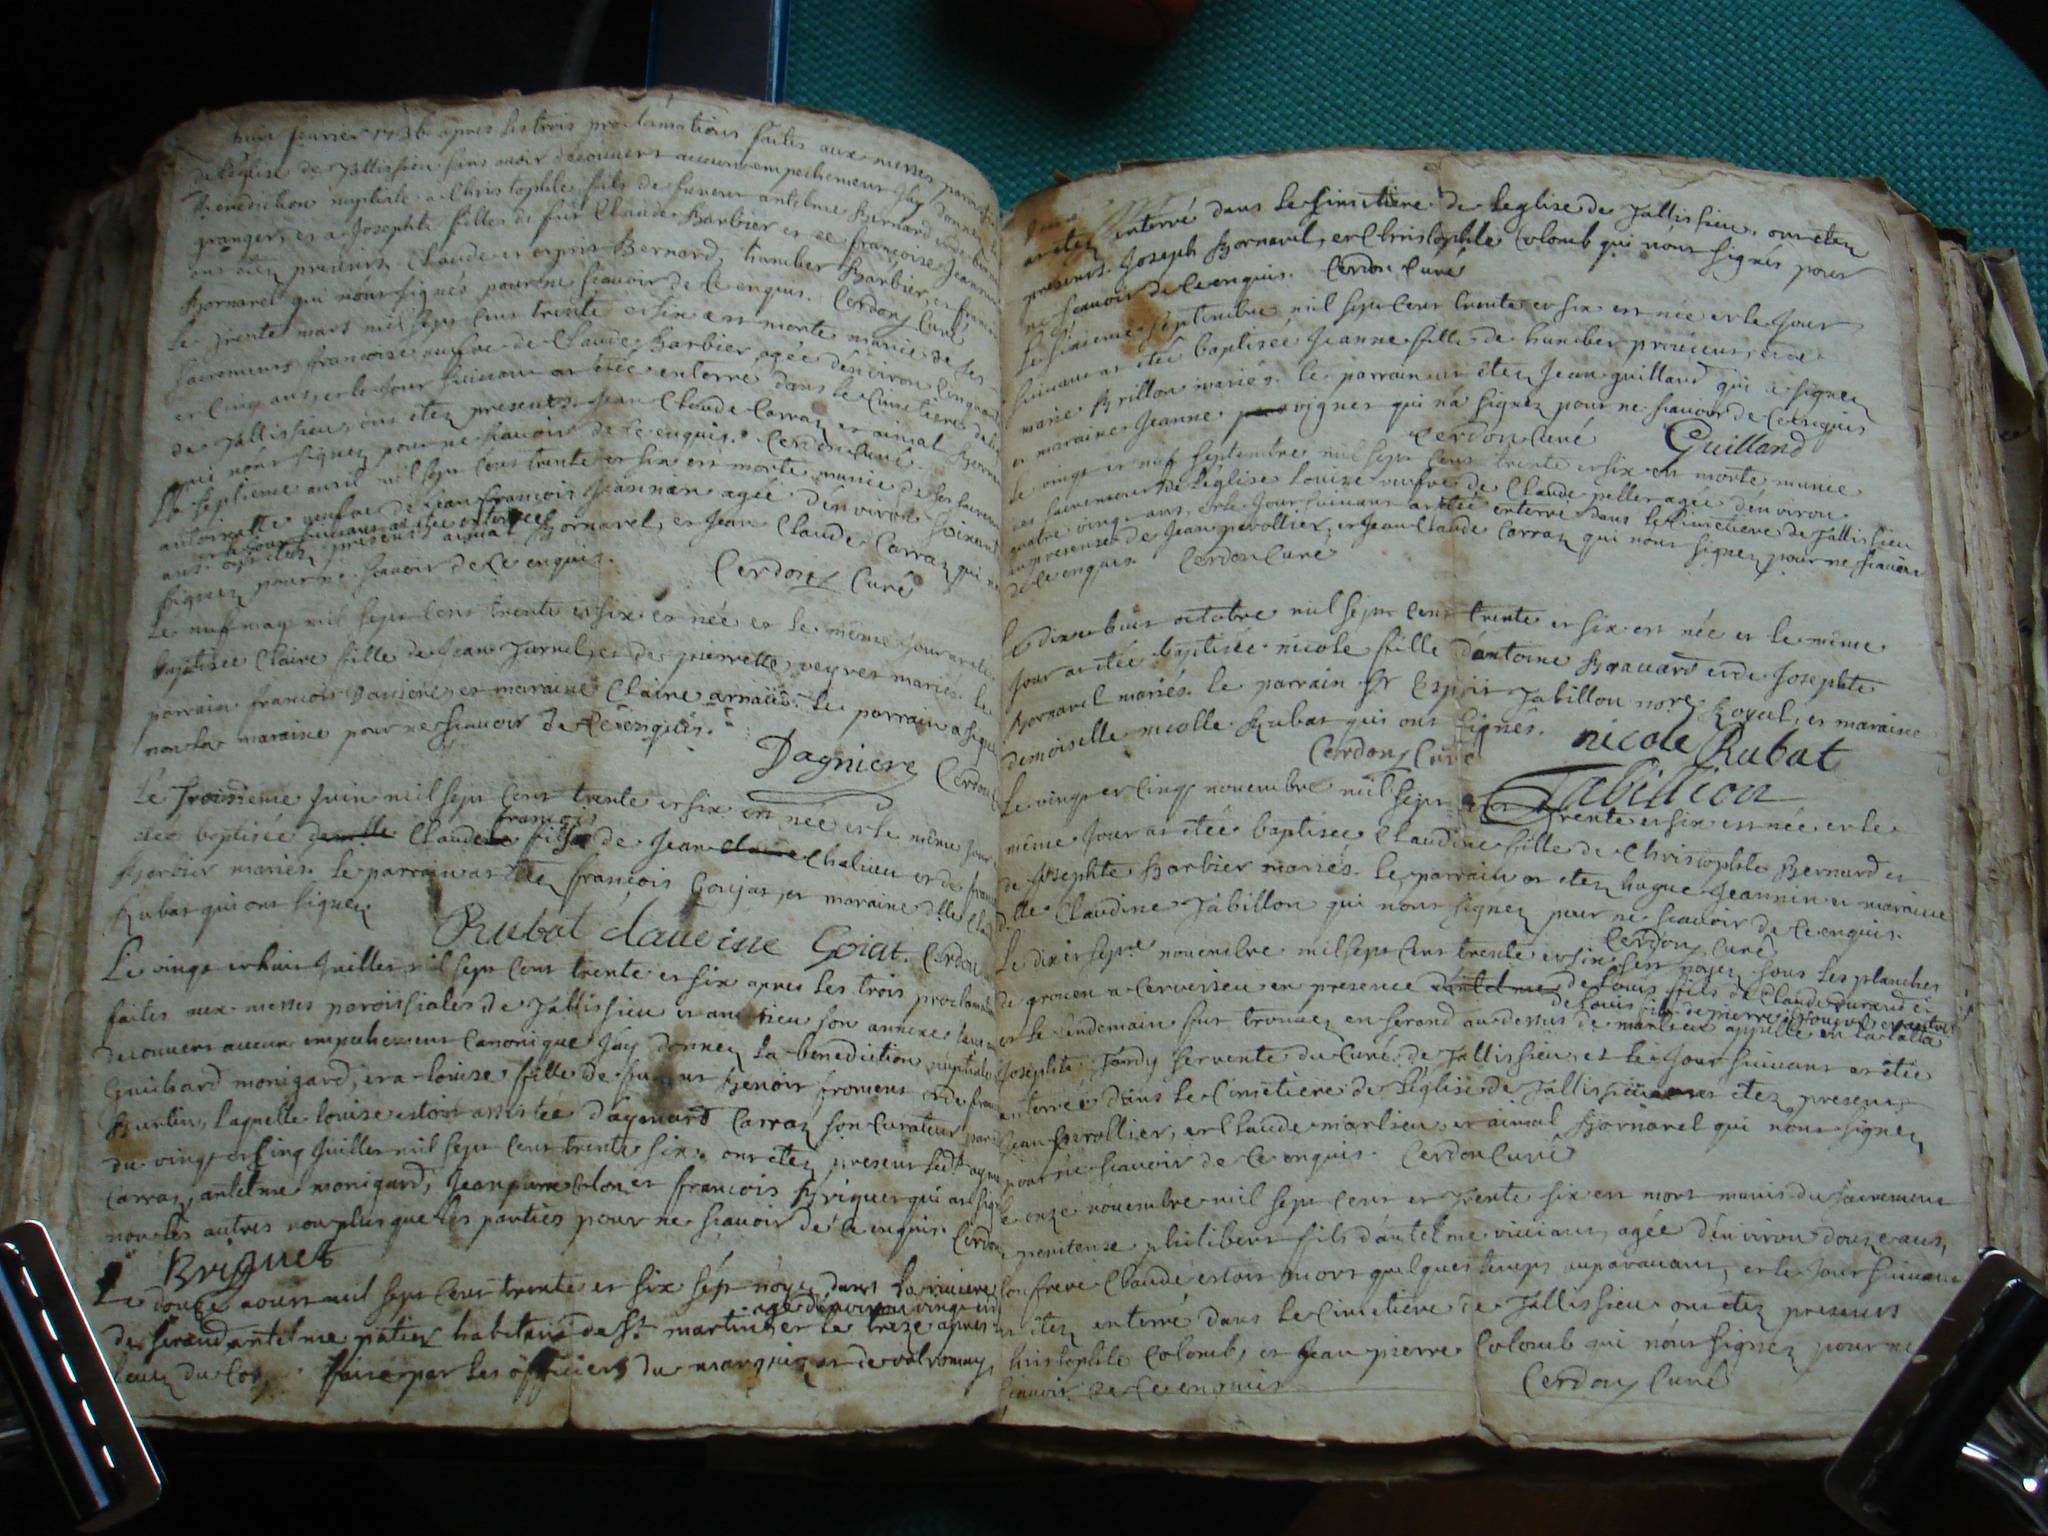 huit feurier 1736 apres les trois proclamations faites aux messes
de leglise de Jallissieu sans auoir decouuert aucun empechement Jay donnez
benediction nuptiale a Christophle fils de antelme Bernard
granger, et a Josephte fille de feu Claude Barbier et de francoise Jeannin
ont etez presents Claude et esprit Bernard, humber Barbier, et
Bornarel qui nont signes pour ne scauoir de ce enquis. Cerdon Curé
Le trente mars mil sept cent trente et six est morte munie de ses
sacrements francoise veufve de Claude Barbier agée denviron cinquante
et cinq ans, et le jour suiuant at etée enterré dans le Cimetiere de
de Jallissieu, ont etez presents Jean Claude Carraz et aimal
qui nont signez pour ne scauoir de ce enquis. Cerdon Curé
Le septieme auril mil sept cent trente et six est morte munie de
antoinette veufve de Jean francois Jeannin agée denviron soixante
et le jour suiuant at etée enterrée
ans ont etez presents aimal Bornarel, et Jean Claude Carraz qui
signez pour ne scauoir de ce enquis. Cerdon Curé
Le neuf may mil sept cent trente et six est née et le même jour
baptisée Claire fille de Jean Jurnel, et de pierrette veyret mariés. Le
parrain francois et maraine Claire arnaüd. Le parrain a signé
non la maraine pour ne scauoir de ce enquis.
Dagniere Cerdon
Le troisieme Juin mil sept cent trente et six est née et le même jour
francois
etée baptisée Claude fils de Jean Chalieu et de
Barbier mariés. Le parrain at etez francois Goujat, et maraine dlle
Rubat qui ont signez.
Rubat claudine Goiat. Cerdon
Le vingt et huit Juillet mil sept cent trente et six apres les trois
faites aux messes paroissiales de Jallissieu et son annexe
decouuert aucun empechement canonique Jay donnez la benediction nuptiale
Guichard monigard, et a louise fille de Benoit froment et de
Burtin, laquelle louise etoit assistée daymard Carraz son Curateur
du vingt et cinq Juillet mil sept cent trente six. ont etez present
Carraz, antelme monigard, Jean pierre et francois Briquet qui at
non les autres non plus que les parties pour ne scauoir de ce enquis. Cerdon
Briquet
Le douze aoust mil sept cent trente et six sest noyé dans la riuiere
agé denviron vingt
de serand antelme patier habitant de St martin, et le treze apres
leuez du Corp faite par les officiers du marquizat de valromey
enterré dans le Cimetiere de leglise de Jallissieu. ont etez
presents Joseph Bornarel, et Christophle Colomb qui nont signés pour
ne scauoir de ce enquis. Cerdon Curé
Le septembre mil sept cent trente et six est née et le Jour
suiuant at etée baptisée Jeanne fille de humber et de
marie Brillon mariés. le parrain at etez Jean guilland qui a signez
et maraine Jeanne vignet qui na signez pour ne scauoir de ce enquis
Cerdon Curé Guilland
Le vingt et neuf septembre mil sept cent trente et six est morte munie
des sacrements de leglise Louize veufve de Claude pellet agée denviron
quatre vingt ans, et le Jour suiuant at etée enterré dans le Cimetiere de Jallissieu
en presence de Jean perollier, et Jean Claude Carraz qui nont signez pour ne scauoir
de ce enquis. Cerdon Curé
Le dix et huit octobre mil sept cent trente et six est née et le même
jour at etée baptisée nicole fille dantoine et de Josephte
Bornarel mariés. le parrain Sr Esprit Tabillon nore Royal, et maraine
demoiselle nicolle Rubat qui ont signés. nicole Rubat
Cerdon Curé
Tabillion
Le vingt et cinq nouembre mil sept cent trente et six est née, et le
même jour at etée baptisée Claudine fille de Christophle Bernard et
de Josephte Barbier mariés. Le parrain at etez hugue Jeannin et maraine
dlle Claudine Tabillon qui nont signez pour ne scauoir de ce enquis.
Cerdon Curé
Le dix et septe nouembre mil sept cent trente et six sest noyez sous les planches
de a Ceruerieu en presence de Louis fils de Claude Durand et
de Louis fils de pierre
et le lendemain fut trouuez en serand au dessus de marlieu appellé en la
Josephte Tardy seruente du Curé de Jallissieu, et le jour suiuant at etée
enterrée dans le Cimetiere de leglise de Jallissieu etez present
Jean perollier, et Claude marlieu, et aimal Bornarel qui nont signez
pour ne scauoir de ce enquis. Cerdon Curé
Le onze nouembre mil sept cent et trente six est mort munis du sacrement
penitense philibert fils dantelme agée denviron douze ans,
son frere Claude etoit mort quelques temps auparauant, et le Jour suiuant
at etez enterré dans le Cimetiere de Jallissieu ont etez presents
Christophle Colomb, et Jean pierre Colomb qui nont signez pour ne
scauoir de ce enquis
Cerdon Curé